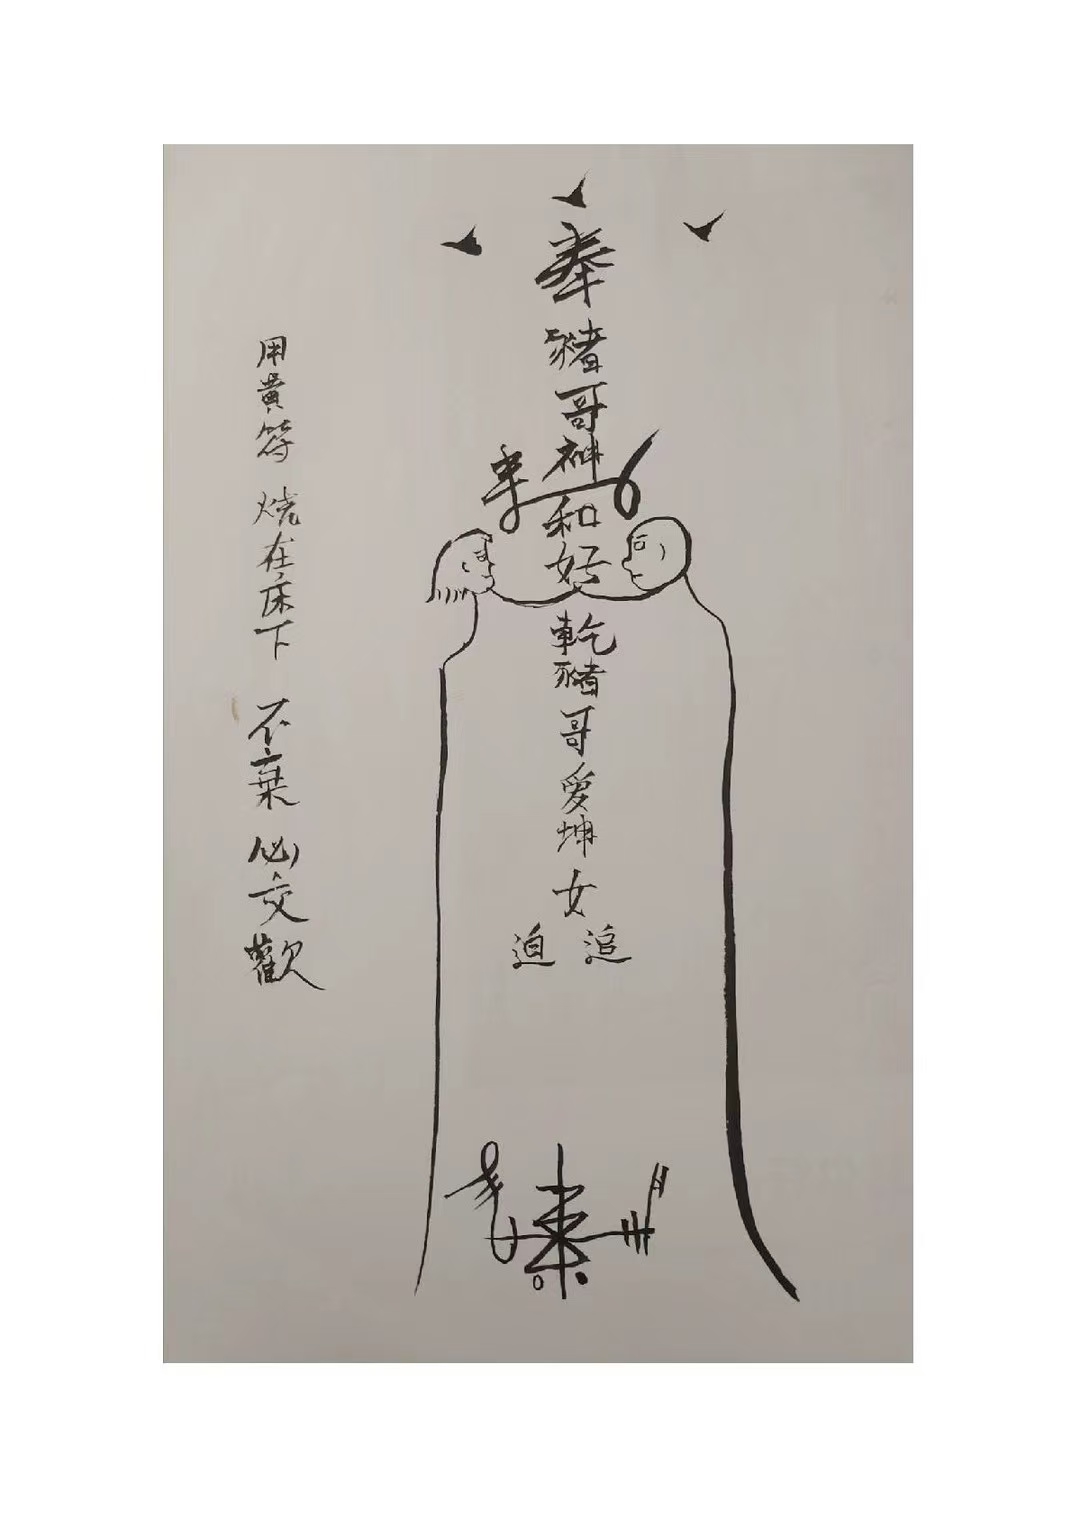 奉
豬哥神
和好
乾豬哥愛坤女
迫 追
用黃符 燒在床下 不棄 必交歡